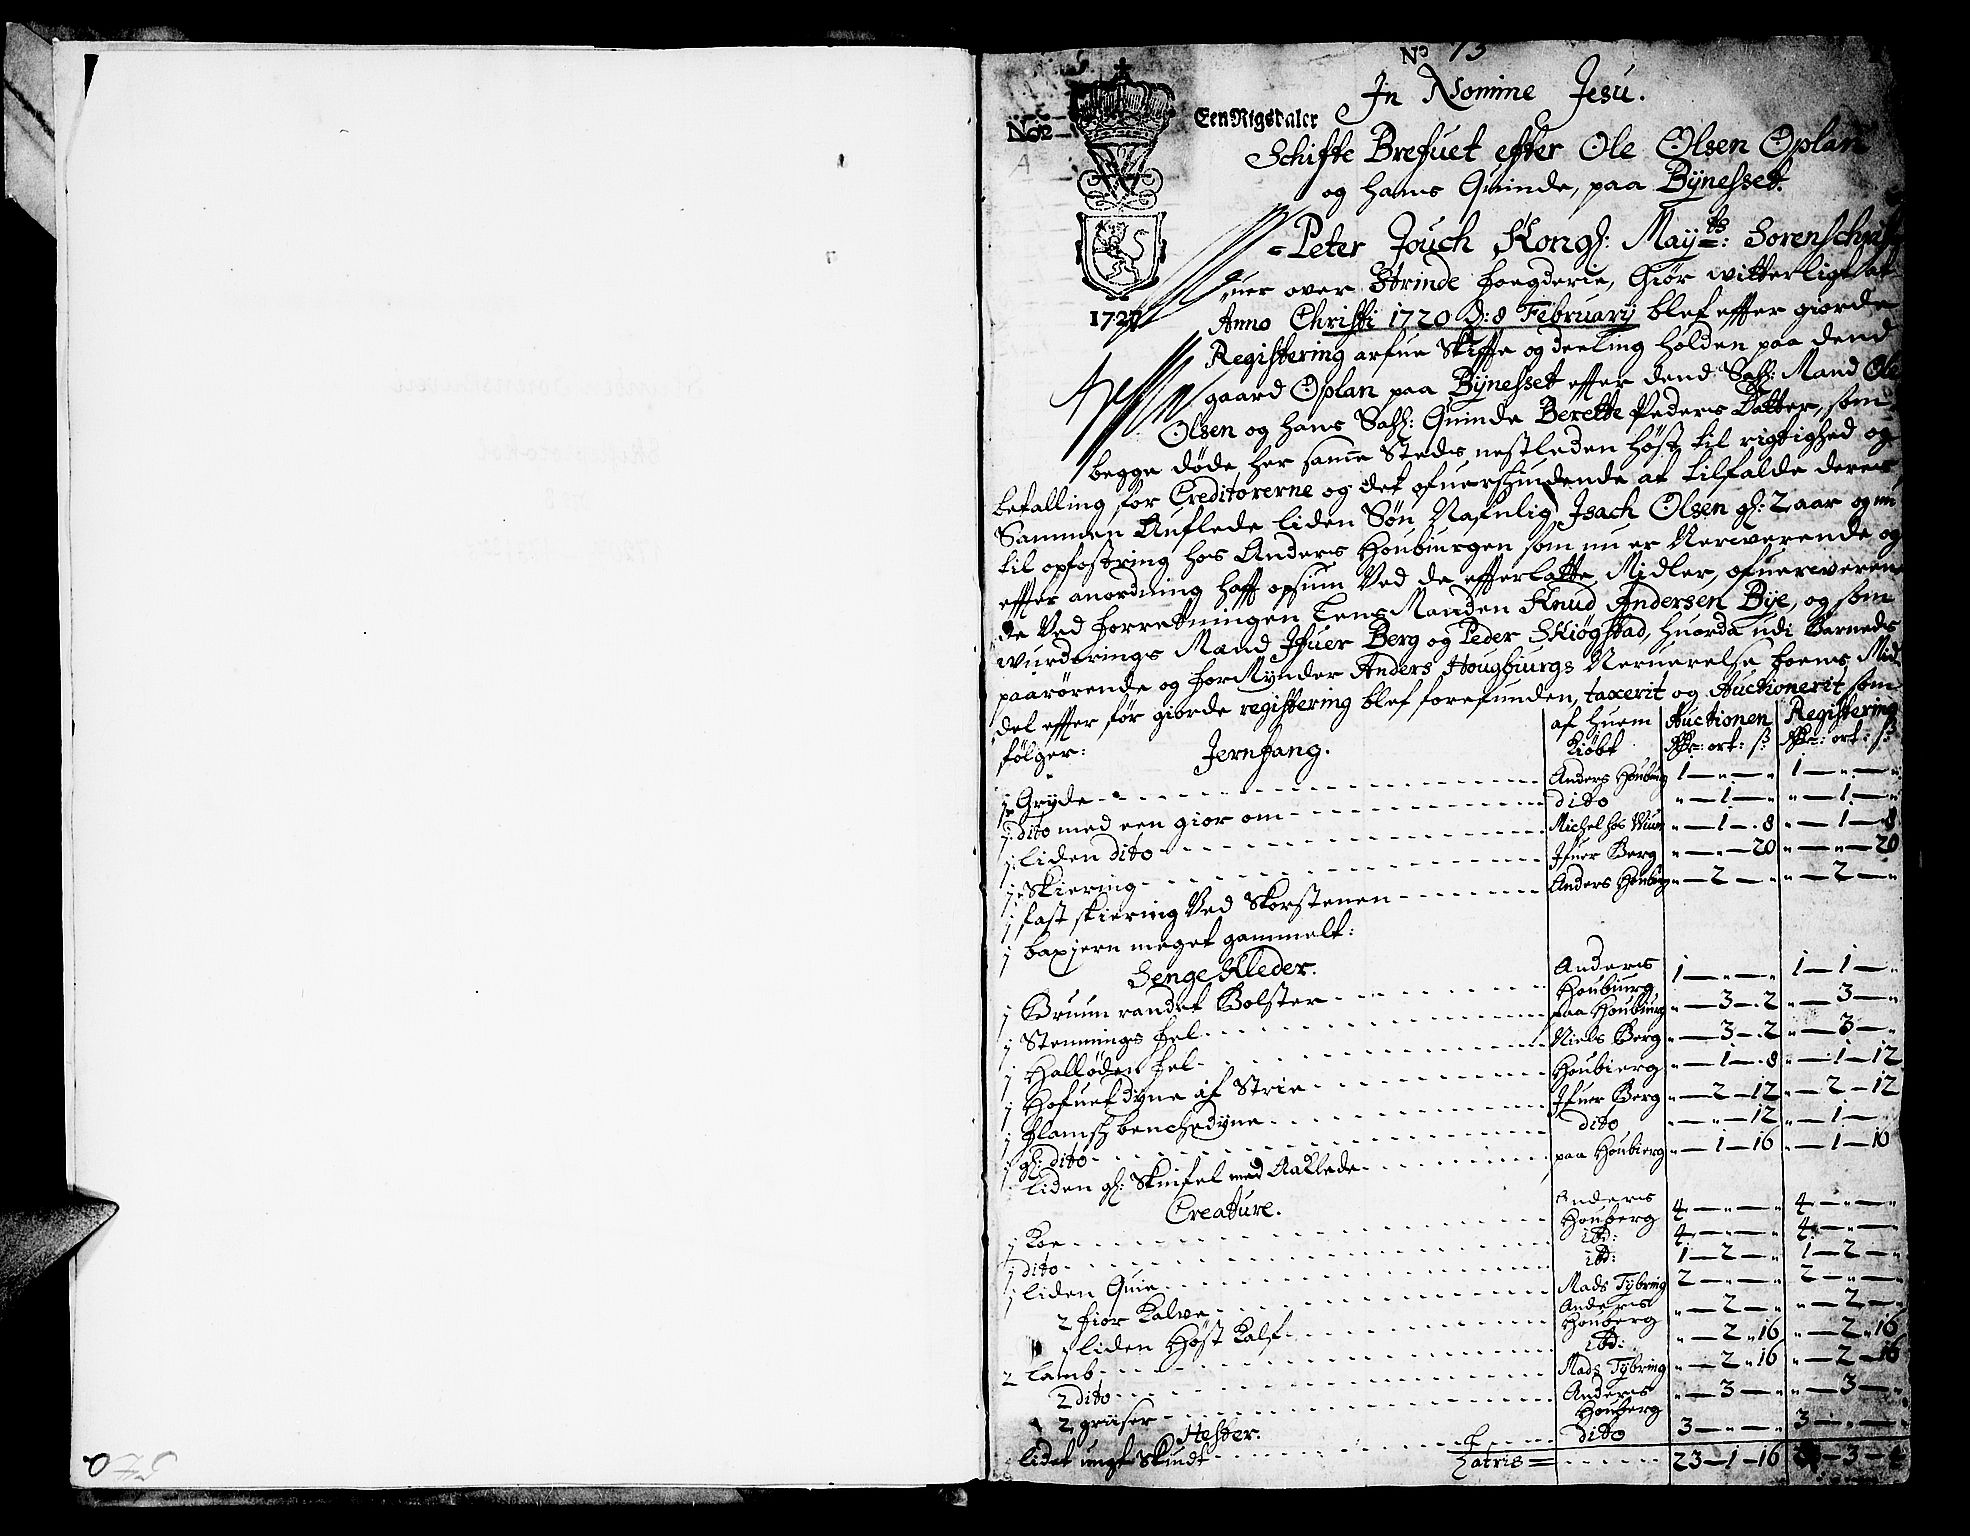 No 73
In Nomine Jesu.
No 2
Een Rigsdaler
Schifte Brefuet efter Ole Olsen Oplan
og hans Quinde, paa Bÿnesset.
Peter Jouch Kongl: Mayts: Sorenschrif
uer over Strinde fougderie, Giør witterligt at
1720
Anno Christi 1720 D: 8 Februarÿ blef effter giorde
Registering arfue Skiffte og deeling holden paa dend
gaard Oplan paa Bÿnesset effter dend Sahl: Mand Ole
Olsen og hans Sahl: Quinde Berette Peders Datter, som
begge døde her samme Steds nestleden høst til rigtighed og
befalling for Creditorerne og det ofuerskudende at tilfalde deres
Sammen Auflede liden Søn Nafnlig Isach Olsen gl: 2 aar og nu
til opfostring hos Anders Houbiurgen som nu er Nerverende og
effter anordning haff opsiun Ved de efferlatte Midler, ofuerweren
de Ved forretningen LensManden Knud Andersen Bÿe, og som
wurderings Mænd Ifuer Berg og Peder Skiøgstad, huorda udi Barneds
paarørende og forMynder Anders Hougbiurgs Neruerelse boens Mid
del effter før giorde registering blef forefunden, taxerit og Auctionerit som
følger:
Jernfang.
af huem Kiøbt | Auctionen Rdr: ort: s | Registering Rdr: ort: s
1 Grÿde - - - Anders Houbiurg 1 — " — " | 1 — " — "
1 dito med een gior om - - - dito " — 1 — " | " — 1 — "
1 liden dito - - - Michel hos Wium " — 1 — 8 | " — 1 — 8
1 Skiering - - - Ifuer Berg " — " — 20 | " — " — 20
1 fast skiering Ved Skorstenen - - - Anders Houbiurg " — 2 — " | " — 2 — "
1 baxjern meget gammelt:
Senge Kleder.
1 Bruun randet Bolster - - - Anders Houbiurg 1 — " — " | 1 — 1 — "
1 Stennings fel - - - paa Houbiurg " — 3 — 2 | " — 3 — "
1 Halløden fel - - - Niels Berg " — 3 — 2 | " — 3 — "
1 Hofuetdÿne af Strie - - - Houbierg " — 1 — 8 | " — 1 — 12
1 flamsk benchedÿne - - - Ifuer Berg " — 2 — 12 | " — 2 — 12
1 gl: dito - - - dito " — " — 12 | " — 1 — "
1 liden gl: Skinfel med Aaklede - - - paa Houbierg " — 1 — 16 | " — 1 — 16
Creature.
1 Koe - - - Anders Houberg 4 — " — " | 4 — " — "
1 dito - - - ibd: 4 — " — " | 4 — " — "
1 liden Quie - - - ibd: 1 — 2 — " | 1 — 2 — "
2 fior Kalve - - - Mads Tÿbring 2 — " — " | 2 — " — "
1 liden Høst Kalf - - - Anders Houberg " — 2 — " | " — 2 — "
2 lamb - - - ibd: " — 2 — 16 | " — 2 — 16
2 dito - - - Mads Tÿbring " — 2 — 16 | " — 2 — 16
2 griiser - - - Anders Houberg " — 3 — " | " — 3 — "
Hester.
1 lidet ungt Skiudt - - - dito 3 — " — " | 3 — " — "
Latris = - - - 23 — 1 — 16 | — 3 —